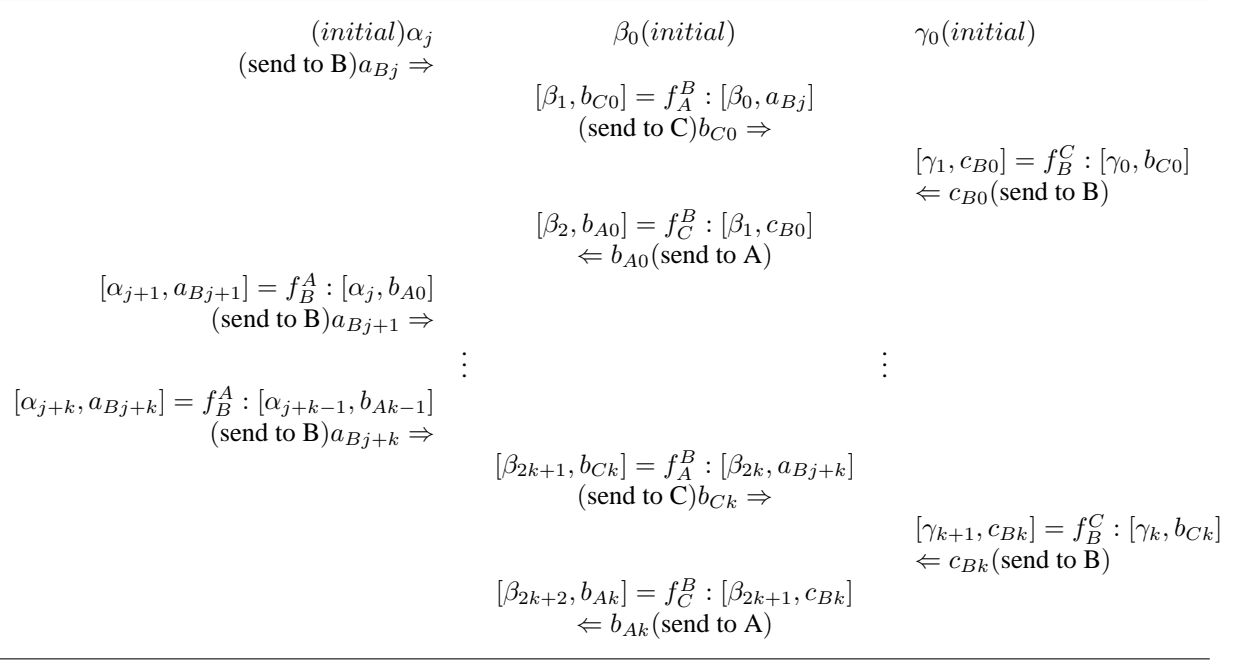 (initial)α_j β_0(initial) γ_0(initial)
(send to B)a_{Bj} ⇒
[β_1, b_{C0}] = f_A^B : [β_0, a_{Bj}]
(send to C)b_{C0} ⇒
[γ_1, c_{B0}] = f_B^C : [γ_0, b_{C0}]
⇐ c_{B0}(send to B)
[β_2, b_{A0}] = f_C^B : [β_1, c_{B0}]
⇐ b_{A0}(send to A)
[α_{j+1}, a_{Bj+1}] = f_B^A : [α_j, b_{A0}]
(send to B)a_{Bj+1} ⇒
⋮ ⋮
[α_{j+k}, a_{Bj+k}] = f_B^A : [α_{j+k−1}, b_{Ak−1}]
(send to B)a_{Bj+k} ⇒
[β_{2k+1}, b_{Ck}] = f_A^B : [β_{2k}, a_{Bj+k}]
(send to C)b_{Ck} ⇒
[γ_{k+1}, c_{Bk}] = f_B^C : [γ_k, b_{Ck}]
⇐ c_{Bk}(send to B)
[β_{2k+2}, b_{Ak}] = f_C^B : [β_{2k+1}, c_{Bk}]
⇐ b_{Ak}(send to A)